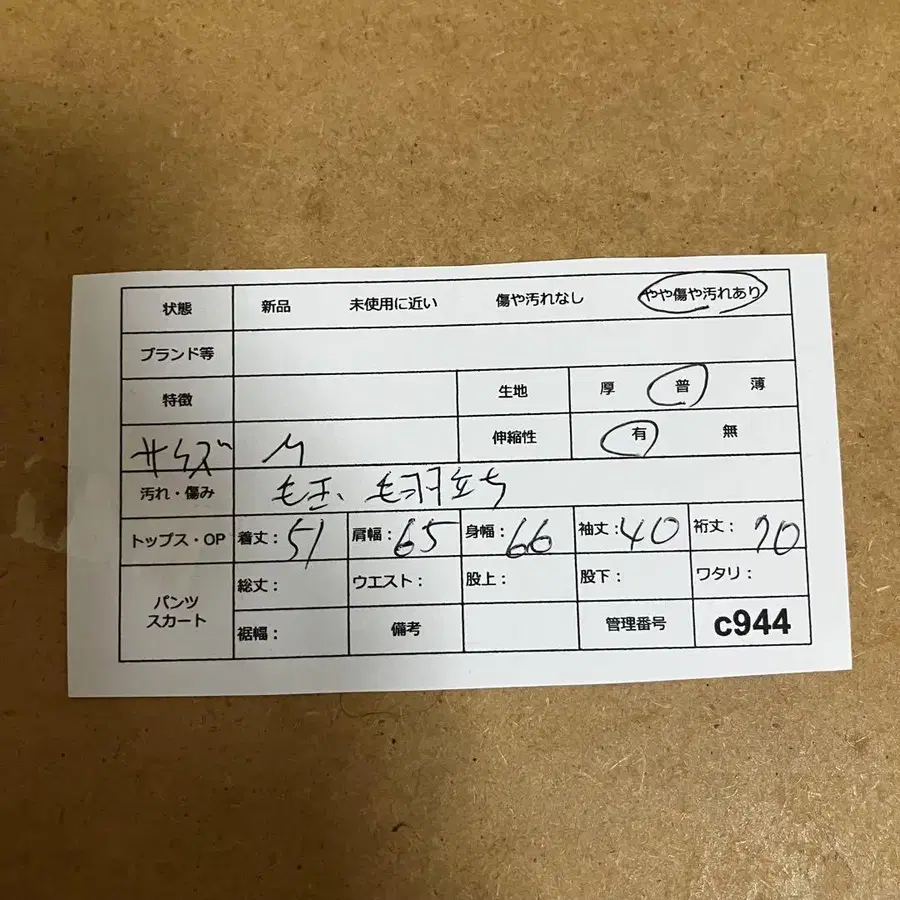 状態 新品 未使用に近い 傷や汚れなし やや傷や汚れあり
ブランド等
特徴 生地 厚 普 薄
サイズ M 伸縮性 有 無
汚れ・傷み 毛玉、毛羽立ち
トップス・OP 着丈：51 肩幅：65 身幅：66 袖丈：40 裄丈：70
パンツ スカート 総丈： ウエスト： 股上： 股下： ワタリ：
裾幅： 備考 管理番号 c944